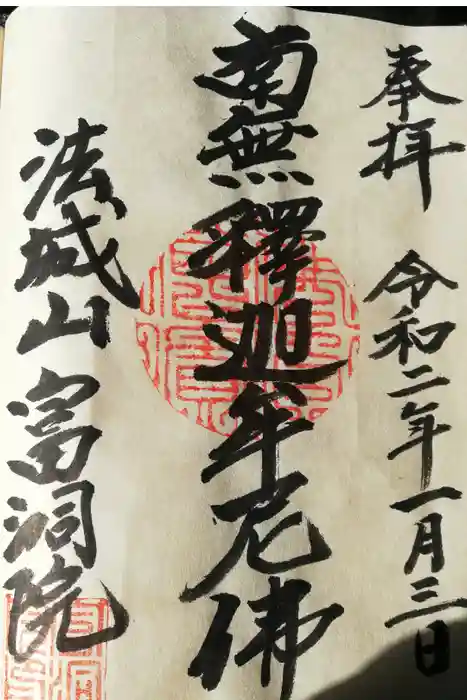 奉拝 令和二年一月三日
南無釋迦牟尼佛
法城山 富洞院